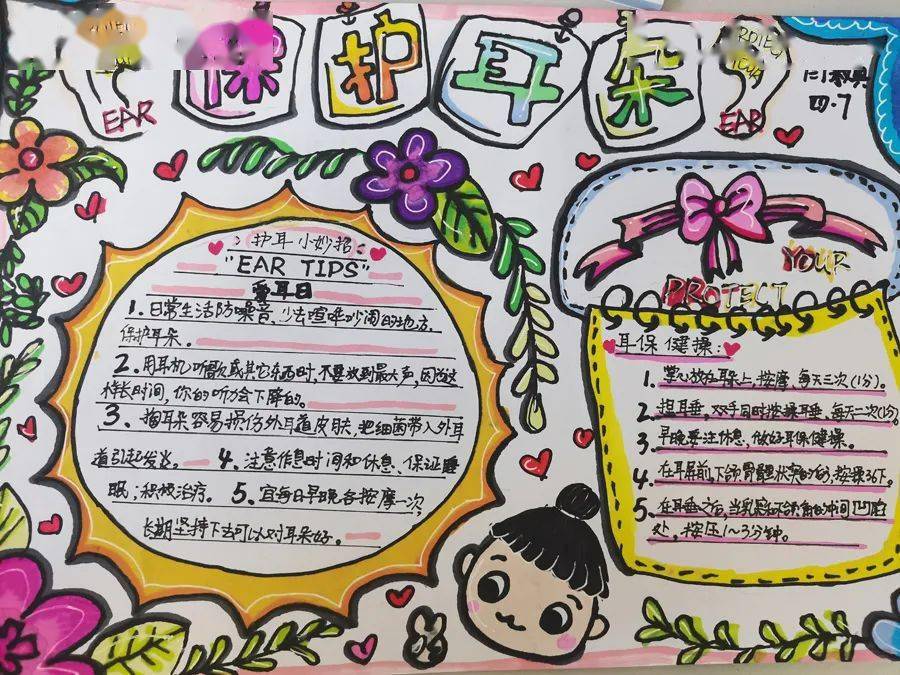 保护耳朵
EAR
EAR
四.7
护耳小妙招
"EAR TIPS"
爱耳日
1.日常生活防噪音、少去喧哗吵闹的地方.
保护耳朵.
2.用耳机听歌或其它东西时,不要放到最大声,因为这
样长时间,你的听力会下降的.
3.掏耳朵容易损伤外耳道皮肤,把细菌带入外耳
道引起发炎。4.注意作息时间和休息、保证睡
眠;积极治疗。5.宜每日早晚各按摩一次,
长期坚持下去可以对耳朵好。
YOUR
PROTECT
耳保健操:
1.掌心放在耳朵上,按摩、每天三次(1分).
2.担耳垂,双手同时按揉耳垂,每天一次(1分)
3.早晚要注休息,做好耳保健操。
4.在耳屏前,下颌骨髁状突的后,按揉36下.
5.在耳垂之后,当乳突下颌角的中间凹陷
处,按压1~3分钟。